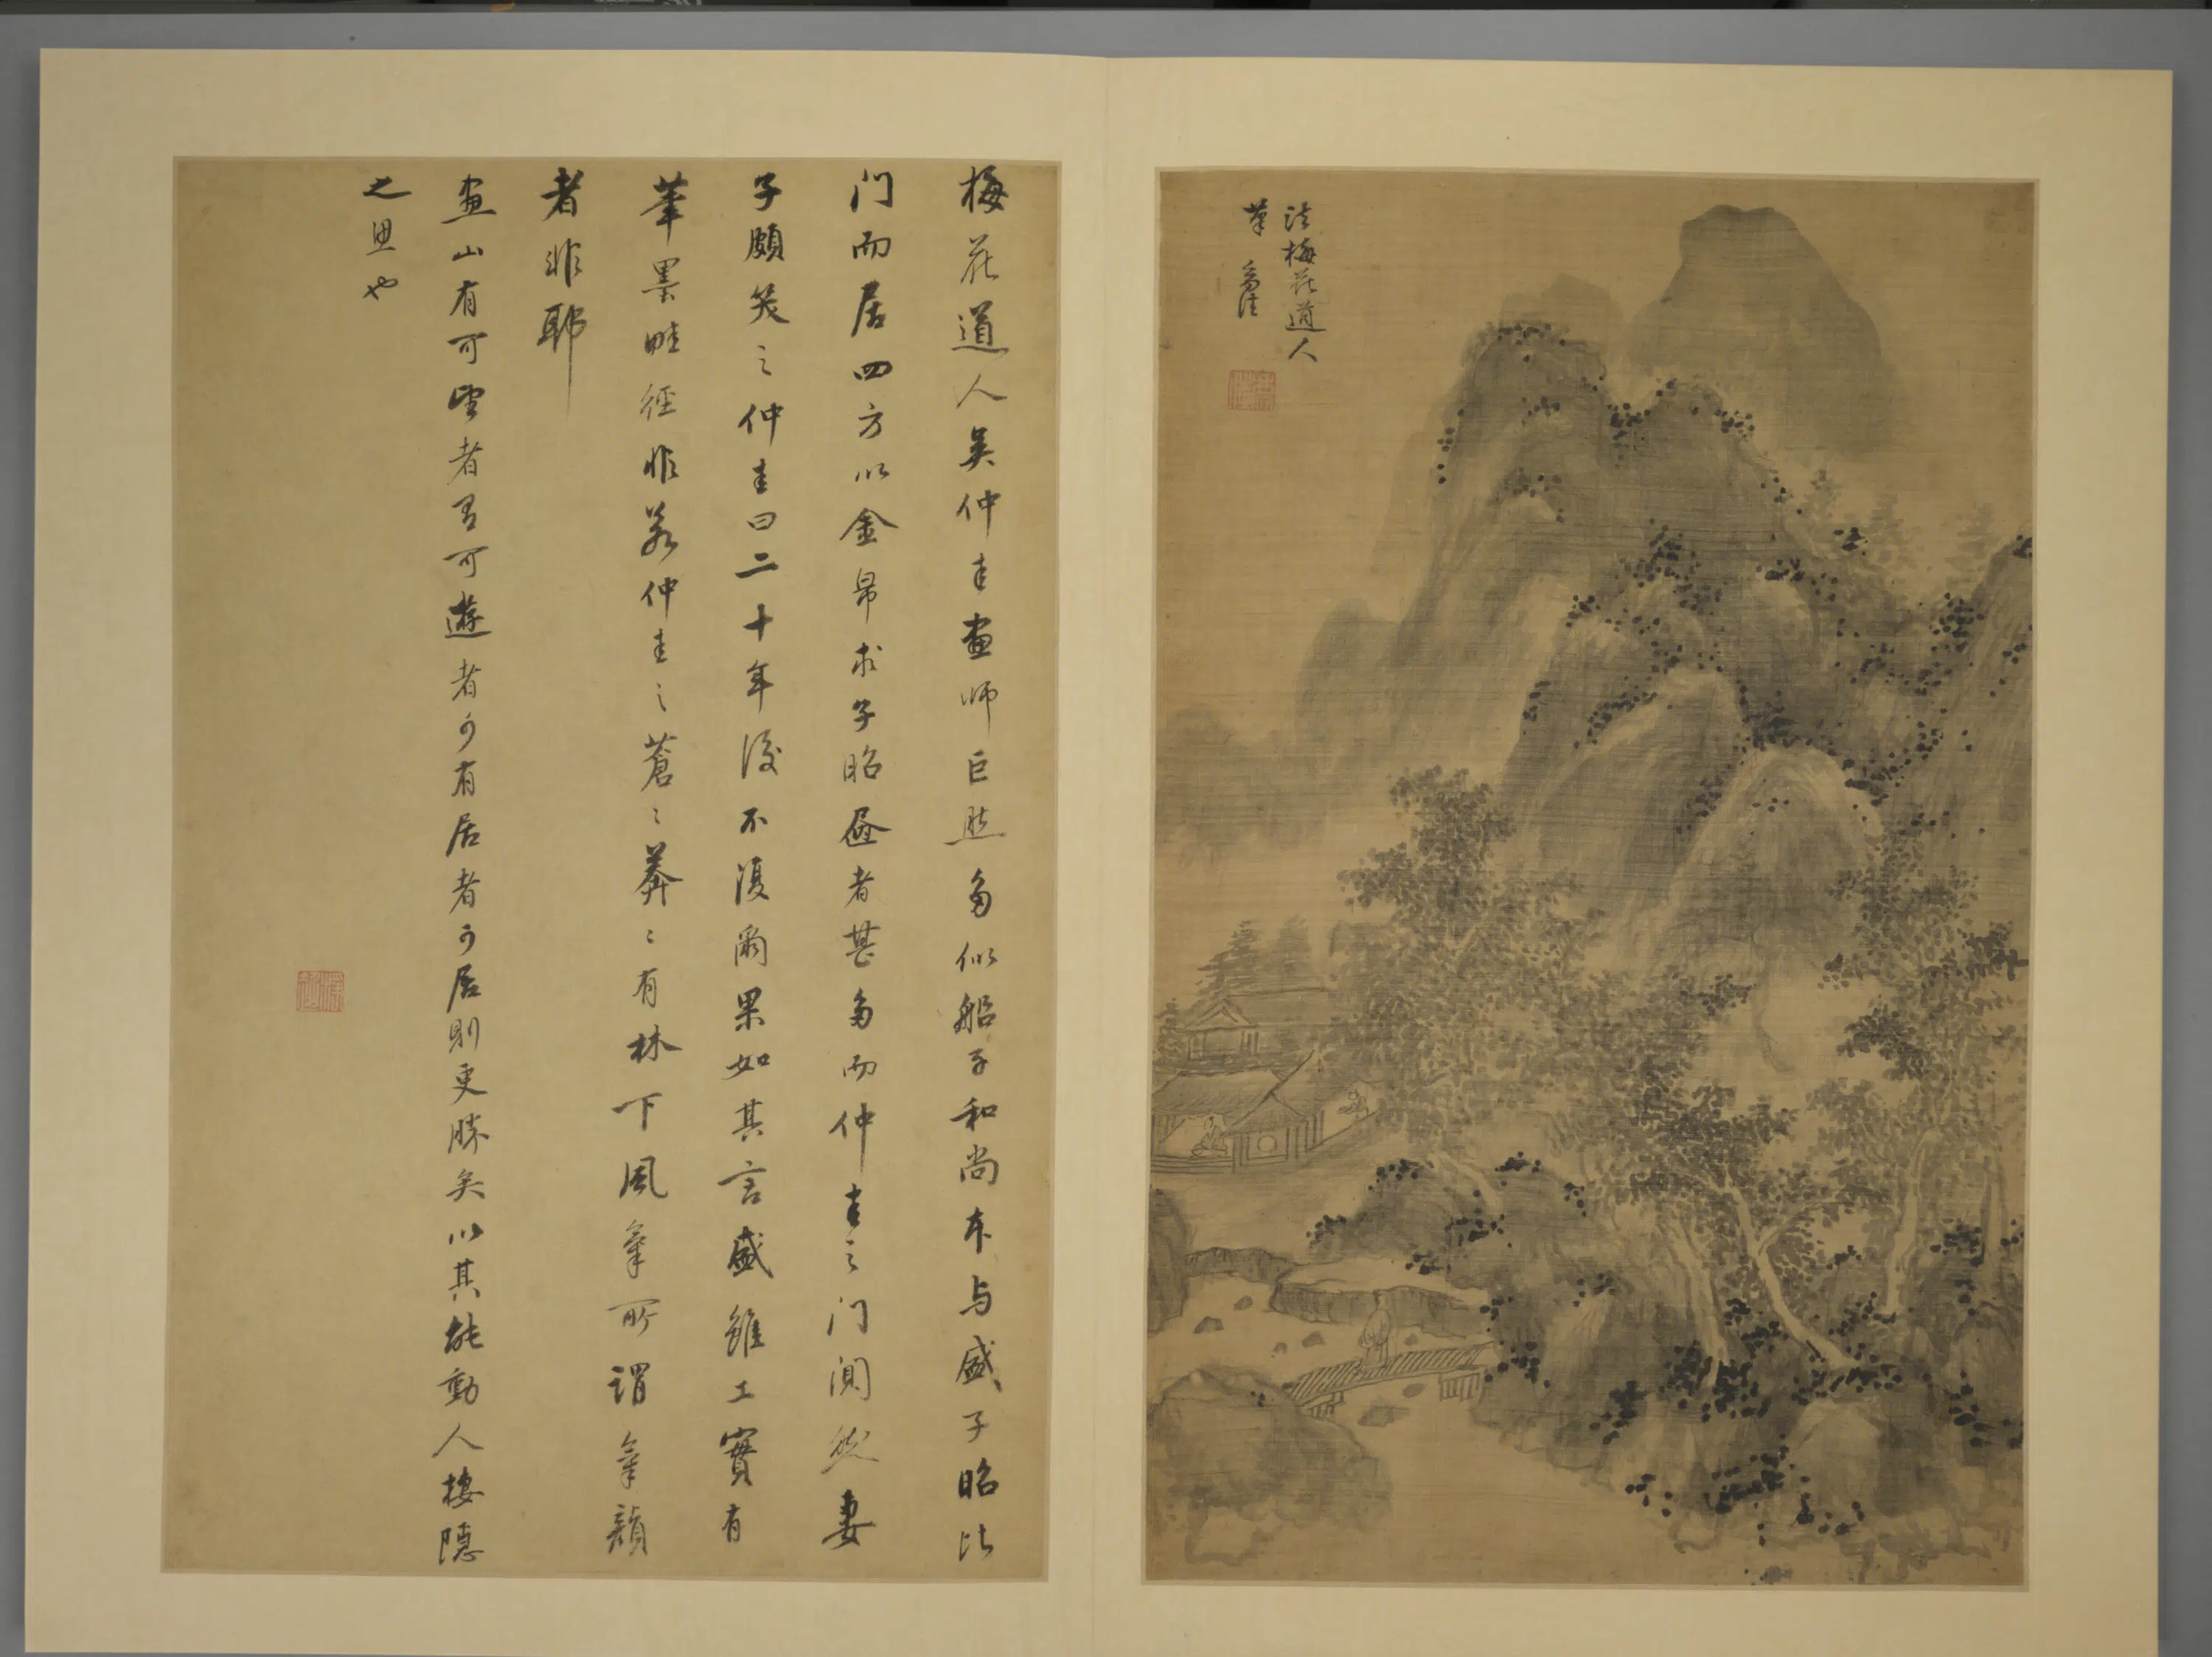 法梅花道人
筆
梅花道人吳仲圭畫師巨然多似船子和尚本与盛子昭比
门而居四方以金帛求子昭昼者甚多而仲圭之门闃然妻
子頗笑之仲圭曰二十年後不復爾果如其言盛雖工實有
筆墨畦徑非若仲圭之蒼〻莽〻有林下風氣所謂氣韻
者非耶
畫山有可望者有可遊者可有居者可居則更勝矣以其能動人棲隱
之思也